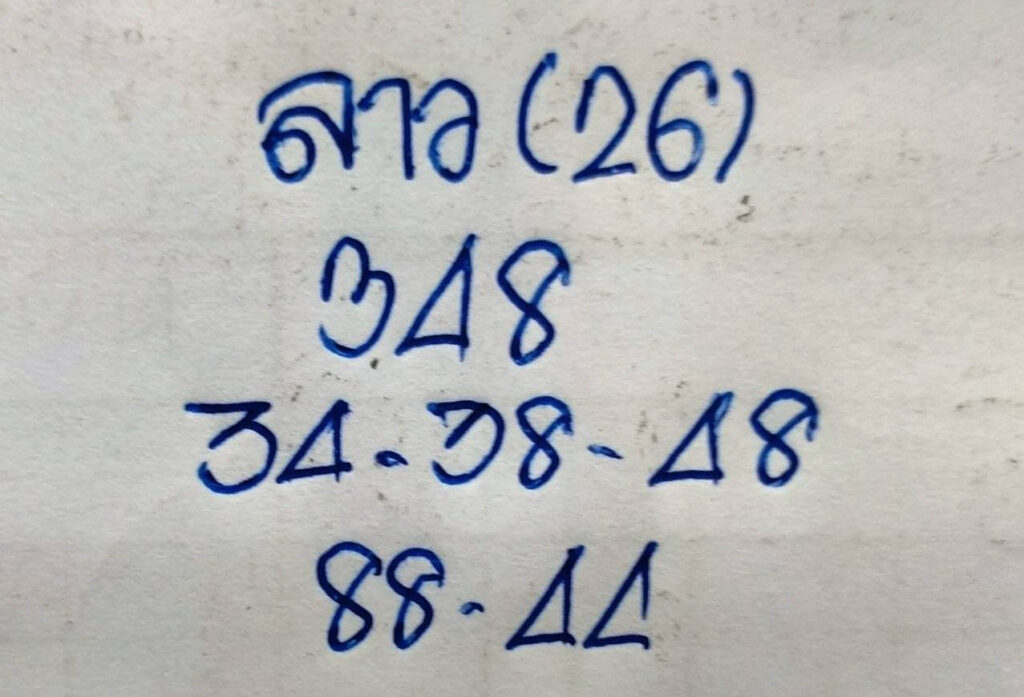 ลาว (26)
348
34-38-48
88-44